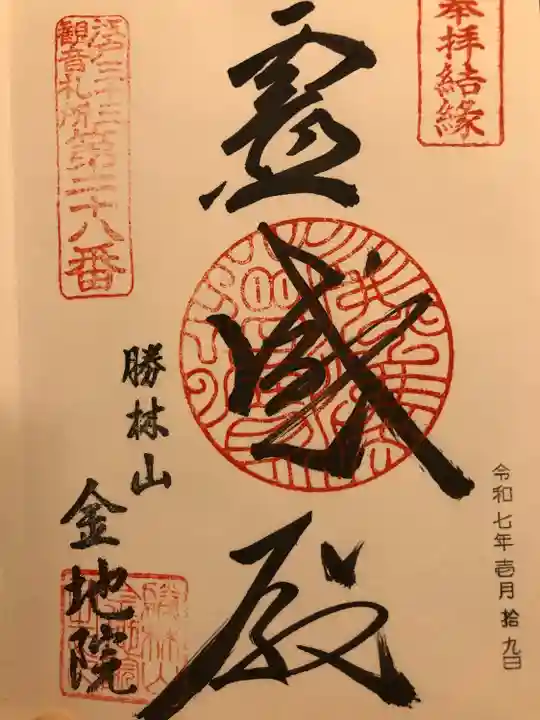 奉拝結縁
令和七年壱月拾九日
霊感殿
江戸三十三
観音札所
第二十八番
勝林山
金地院